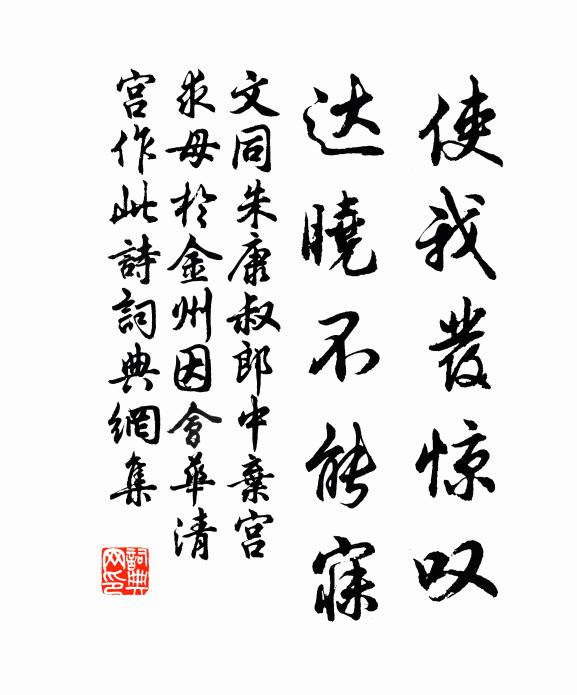 使我發惊叹
达曉不能寐
文同朱康叔郎中棄宫
求母於金州因會華清
宫作此詩詞典網集
詞典网印